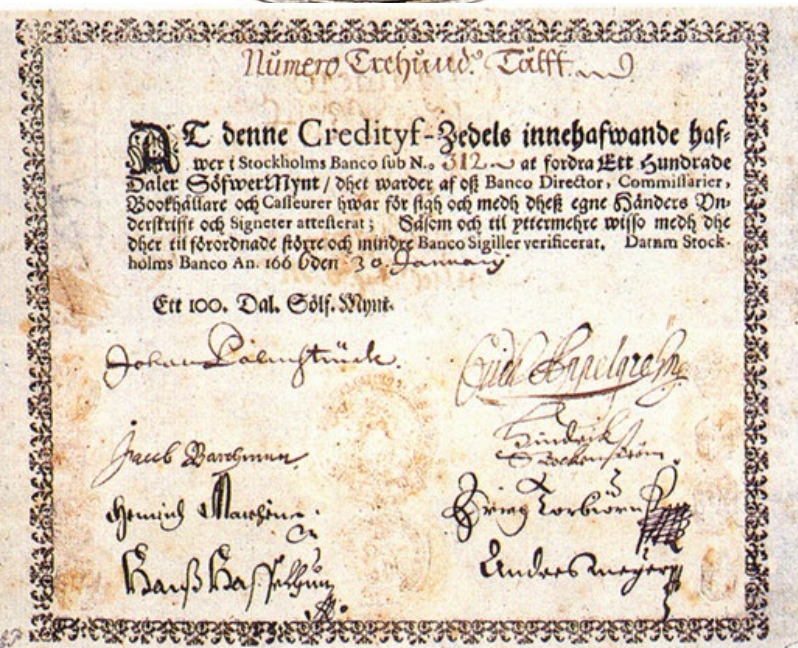 Numero Trehund. Tålff.
AT denne Credityf-Zedels innehafwande haf-
wer i Stockholms Banco sub N.o 312 at fordra Ett Hundrade
Daler SölfwerMynt / dhet warder af oß Banco Director, Commissarier,
Bookhållare och Casseurer hwar för sigh och medh dheß egne Händers Vn-
derskrifft och Signeter attesterat; Såsom och til yttermehre wisso medh dhe
dher til förordnade större och mindre Banco Sigiller verificerat. Datum Stock-
holms Banco An. 166 6 den 30. January
Ett 100. Dal. Sölf. Mynt.
Johan Palmstruck.
Jacob Barchman
Hindrick
Heinrich
Torbiörn
Hanß
Andres meyer